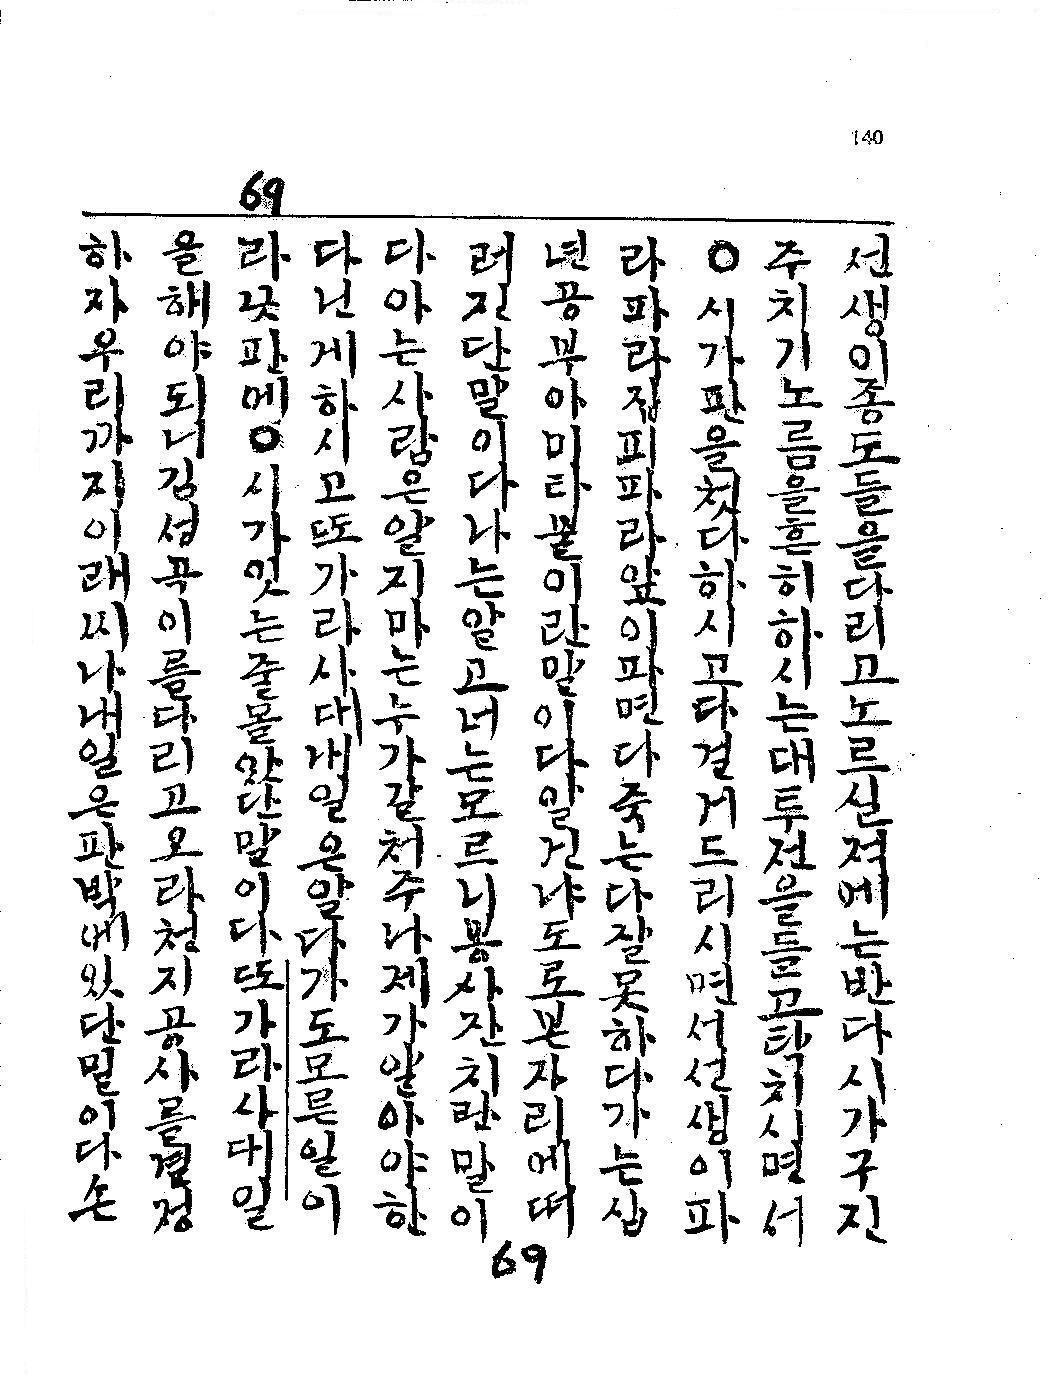 140
69
선생이종도들을다리고노르실져에는반다시가구진
주치기노름을흔히하시는대투젼을들고탁치시면서
○시가판을첫다하시고다걸거드리시면서선생이파
라파라잡피파라앞이파면다죽는다잘못하다가는십
년공부아미타불이란말이다알건냐도로본자리에떠
러진단말이다나는알고너는모르니봉사잔치란말이
다아는사람은알지마는누가갈처주나제가알아야한
다넌게하시고또가라사대내일은알다가도모른일이
라낫판에○시가잇는줄몰앗단말이다또가라사대일
을해야되니김성국이를다리고오라천지공사를결정
하자우리까지이래씨나내일은판밖에있단밀이다손
69